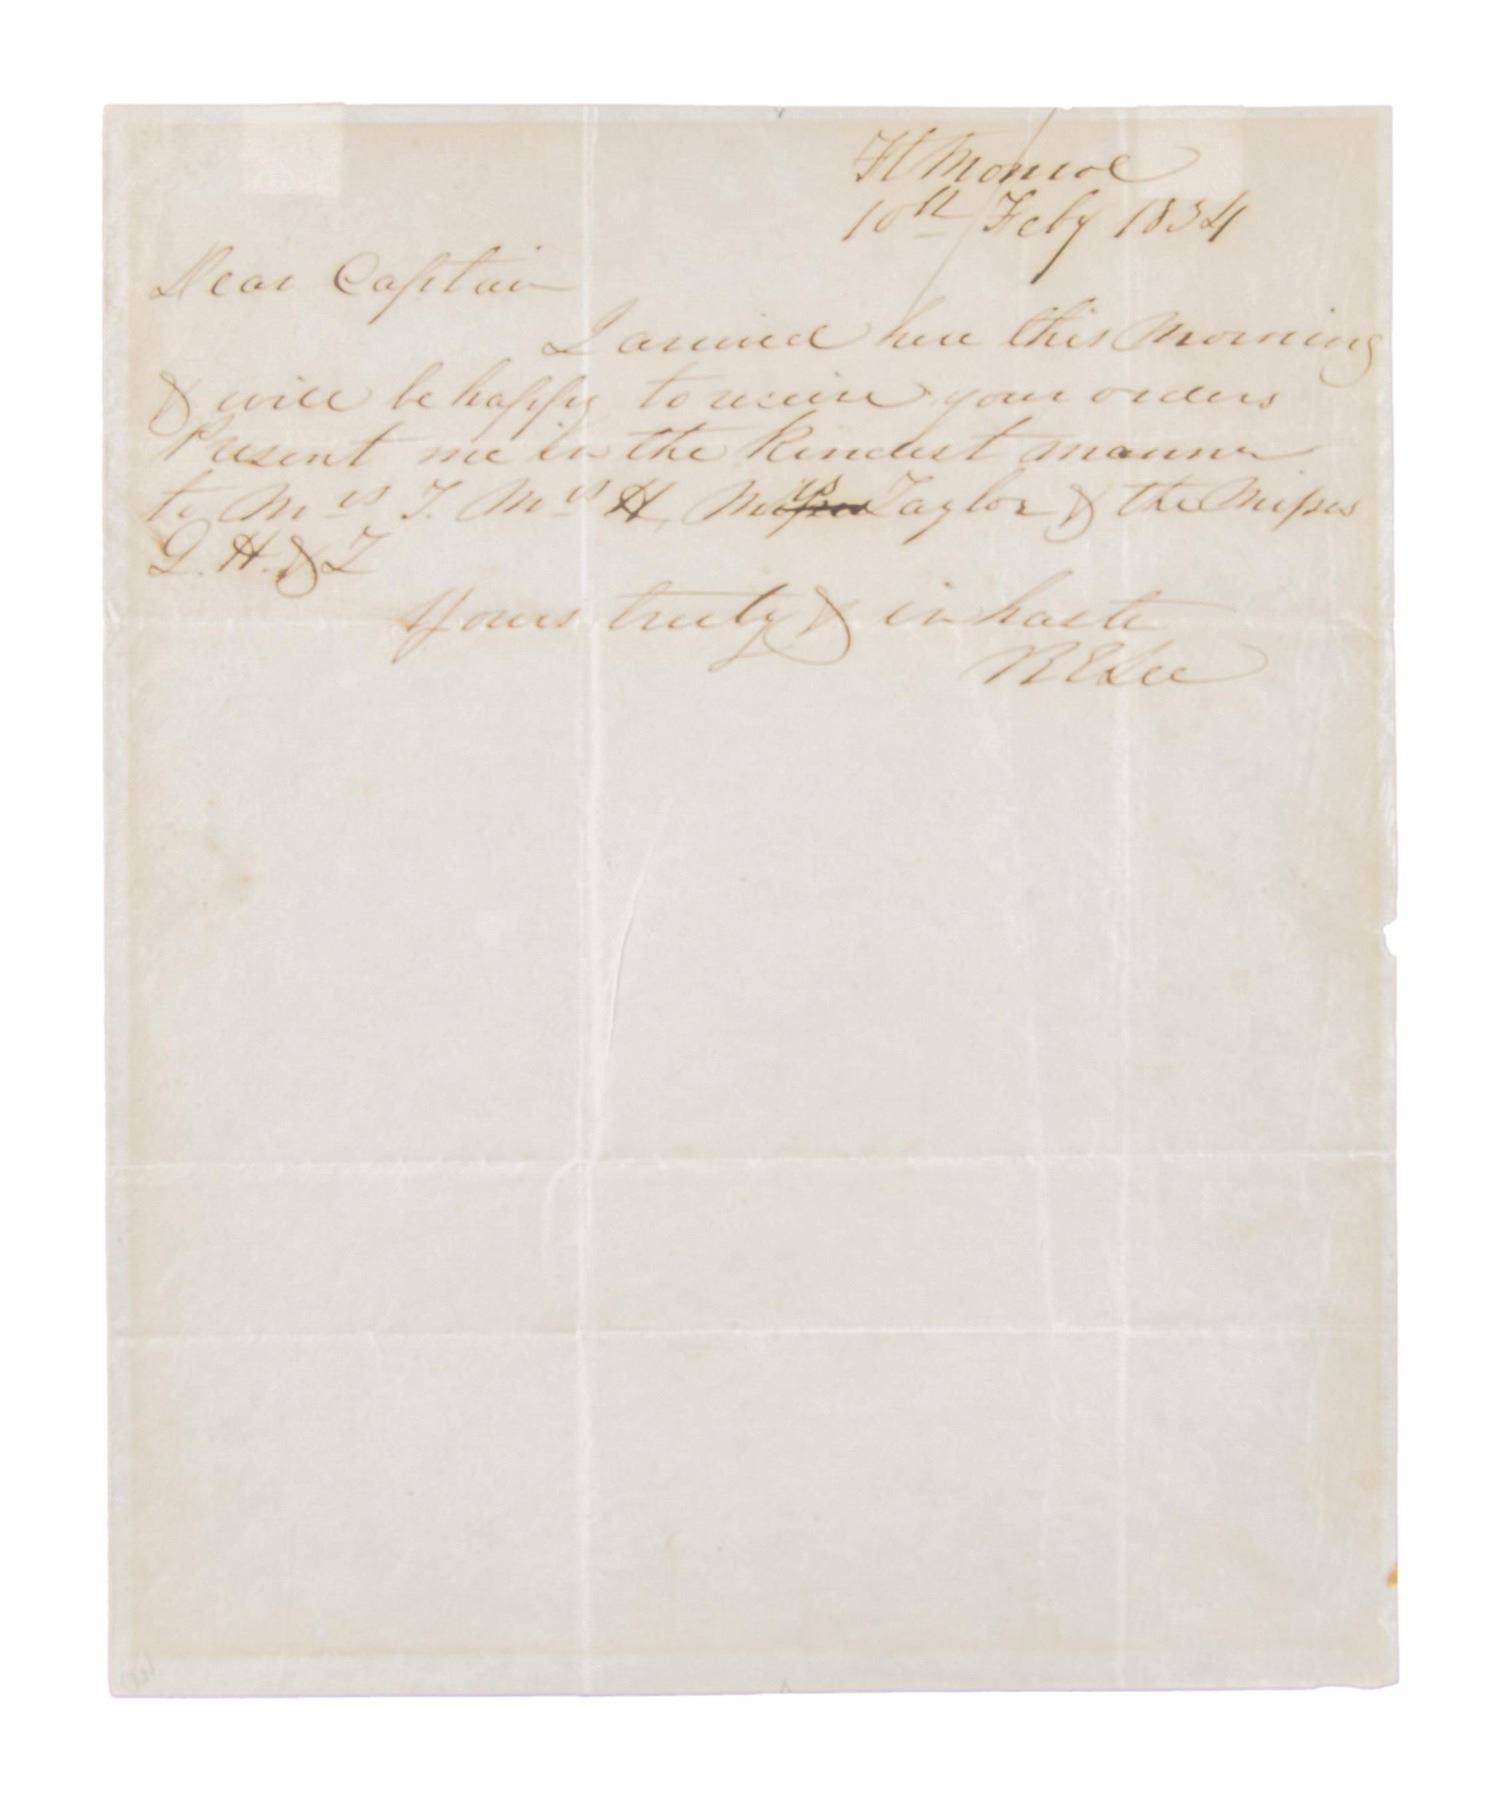 Ft Monroe
10th Feby 1834
Dear Captain
I arrived here this Morning
& will be happy to receive your orders
Present me in the kindest manner
to Mrs T. Mrs H, Mrs Taylor & the Misses
G. H. & T
Yours truly & in haste
R E Lee